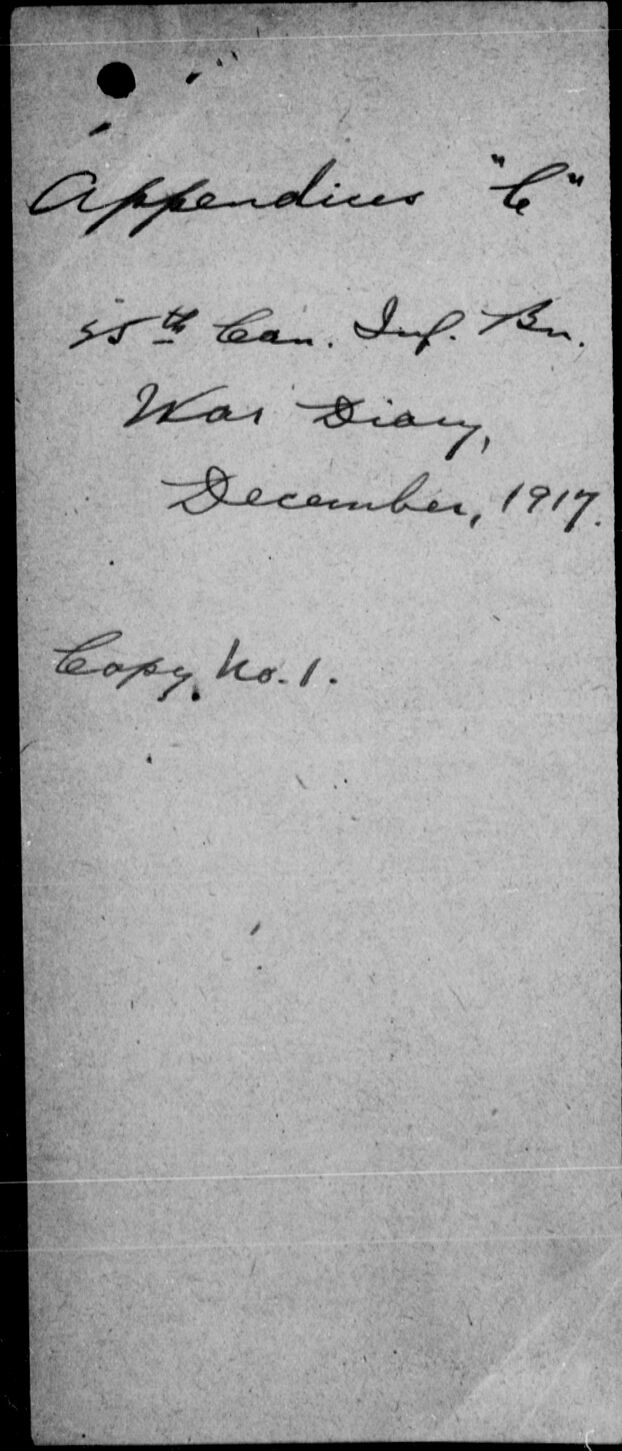 Appendices "C"
25th Can. Inf. Bn.
War Diary,
December, 1917.
Copy No. 1.